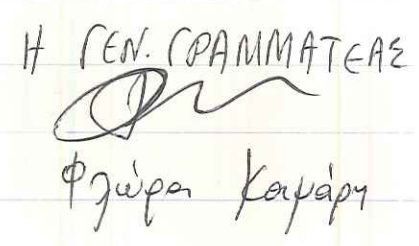 Η ΓΕΝ. ΓΡΑΜΜΑΤΕΑΣ
Φλώρα Καψάρη